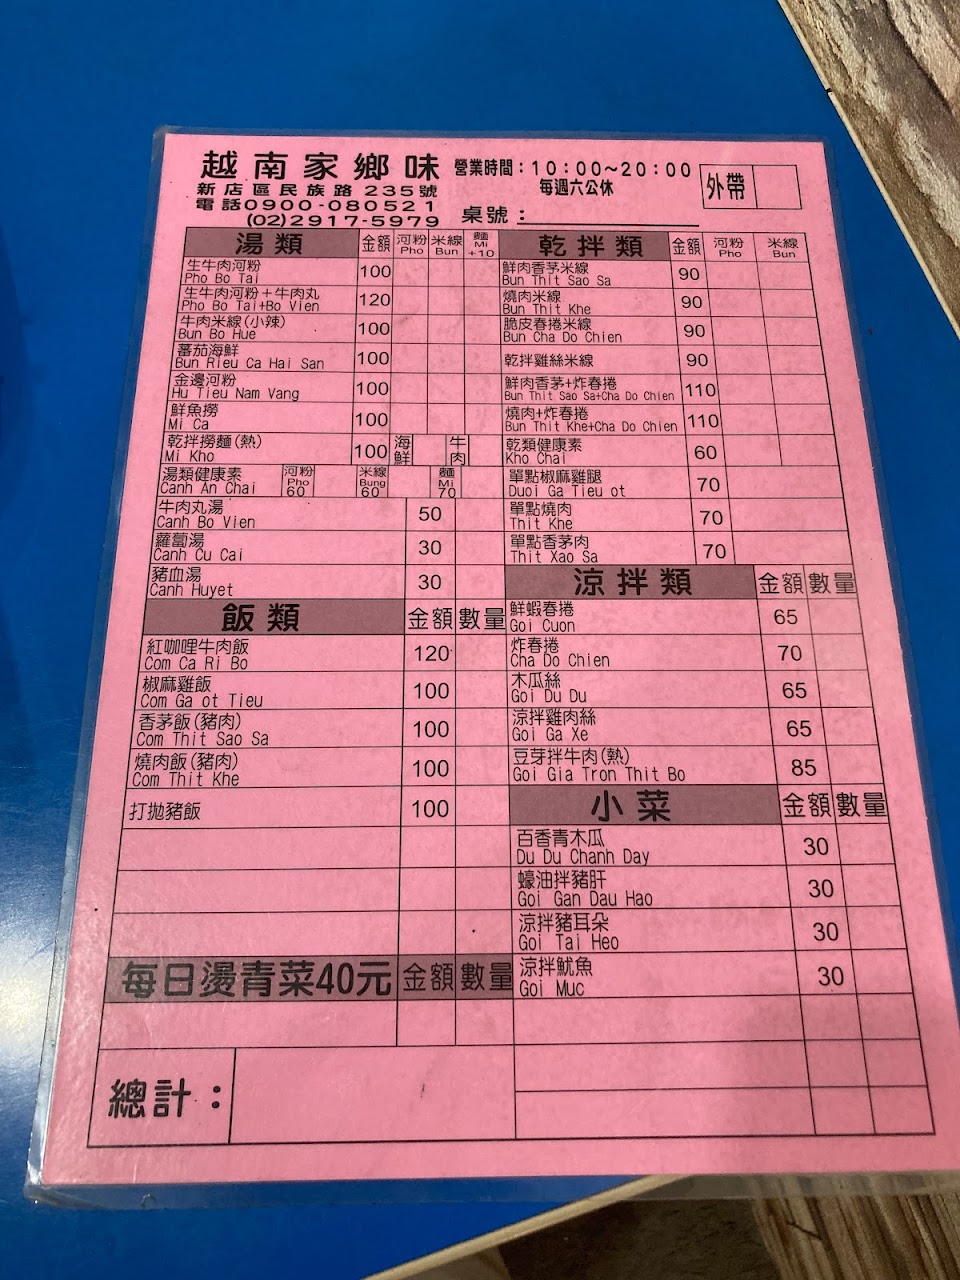 越南家鄉味
營業時間：10:00~20:00
每週六公休
新店區民族路 235號
電話0900-080521
(02)2917-5979
桌號：
外帶
湯類 金額 河粉 Pho 米線 Bun 麵 Mi +10
生牛肉河粉 100
Pho Bo Tai
生牛肉河粉＋牛肉丸 120
Pho Bo Tai+Bo Vien
牛肉米線(小辣) 100
Bun Bo Hue
蕃茄海鮮 100
Bun Rieu Ca Hai San
金邊河粉 100
Hu Tieu Nam Vang
鮮魚撈 100
Mi Ca
乾拌撈麵(熱) 100 海鮮 牛肉
Mi Kho
湯類健康素 河粉 Pho 60 米線 Bung 60 麵 Mi 70
Canh An Chai
牛肉丸湯 50
Canh Bo Vien
蘿蔔湯 30
Canh Cu Cai
豬血湯 30
Canh Huyet
飯類 金額 數量
紅咖哩牛肉飯 120
Com Ca Ri Bo
椒麻雞飯 100
Com Ga ot Tieu
香茅飯(豬肉) 100
Com Thit Sao Sa
燒肉飯(豬肉) 100
Com Thit Khe
打拋豬飯 100
每日燙青菜40元 金額 數量
總計：
乾拌類 金額 河粉 Pho 米線 Bun
鮮肉香茅米線 90
Bun Thit Sao Sa
燒肉米線 90
Bun Thit Khe
脆皮春捲米線 90
Bun Cha Do Chien
乾拌雞絲米線 90
鮮肉香茅+炸春捲 110
Bun Thit Sao Sa+Cha Do Chien
燒肉+炸春捲 110
Bun Thit Khe+Cha Do Chien
乾類健康素 60
Kho Chai
單點椒麻雞腿 70
Duoi Ga Tieu ot
單點燒肉 70
Thit Khe
單點香茅肉 70
Thit Xao Sa
涼拌類 金額 數量
鮮蝦春捲 65
Goi Cuon
炸春捲 70
Cha Do Chien
木瓜絲 65
Goi Du Du
涼拌雞肉絲 65
Goi Ga Xe
豆芽拌牛肉(熱) 85
Goi Gia Tron Thit Bo
小菜 金額 數量
百香青木瓜 30
Du Du Chanh Day
蠔油拌豬肝 30
Goi Gan Dau Hao
涼拌豬耳朵 30
Goi Tai Heo
涼拌魷魚 30
Goi Muc